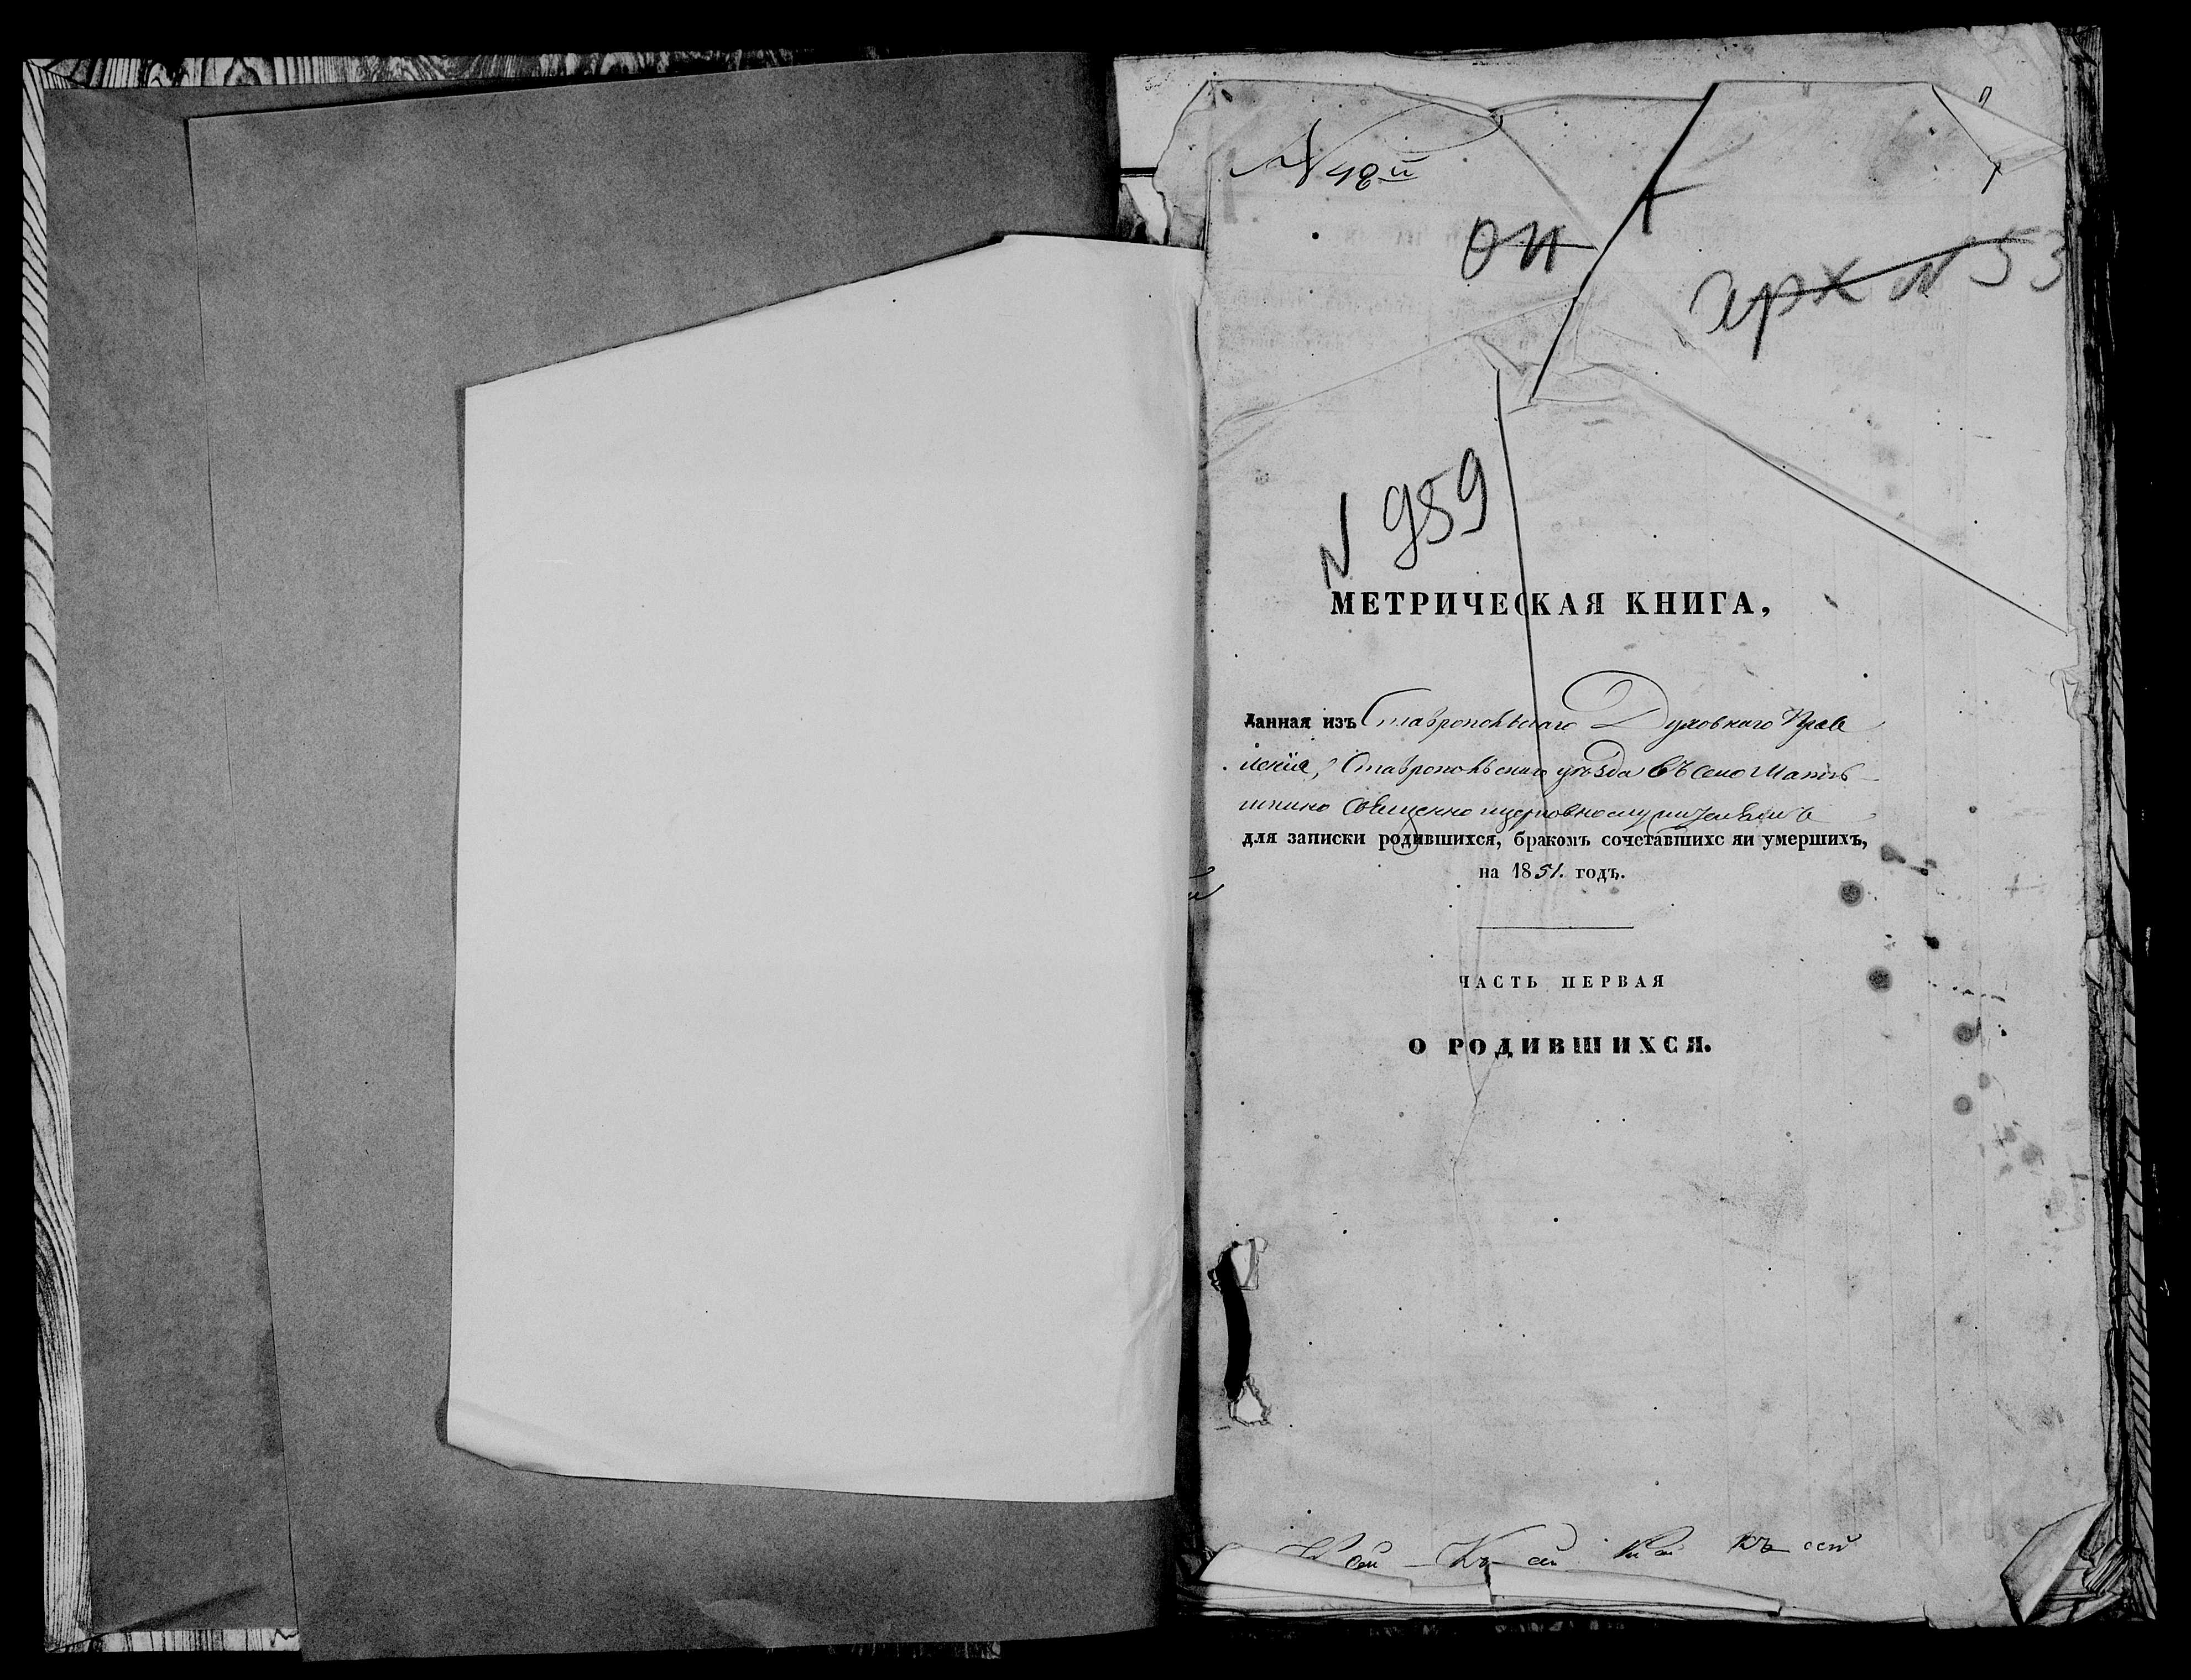 N 48й
1
ОИ
арх N 53
N 959
МЕТРИЧЕСКАЯ КНИГА,
данная изъ Ставропольскаго Духовнаго Прав
ленія, Ставропольскаго уѣзда въ село
Священно церковнослужителямъ
для записки родившихся, бракомъ сочетавшихс яи умершихъ,
на 1851. годъ.
ЧАСТЬ ПЕРВАЯ
О РОДИВШИХСЯ.
къ сей